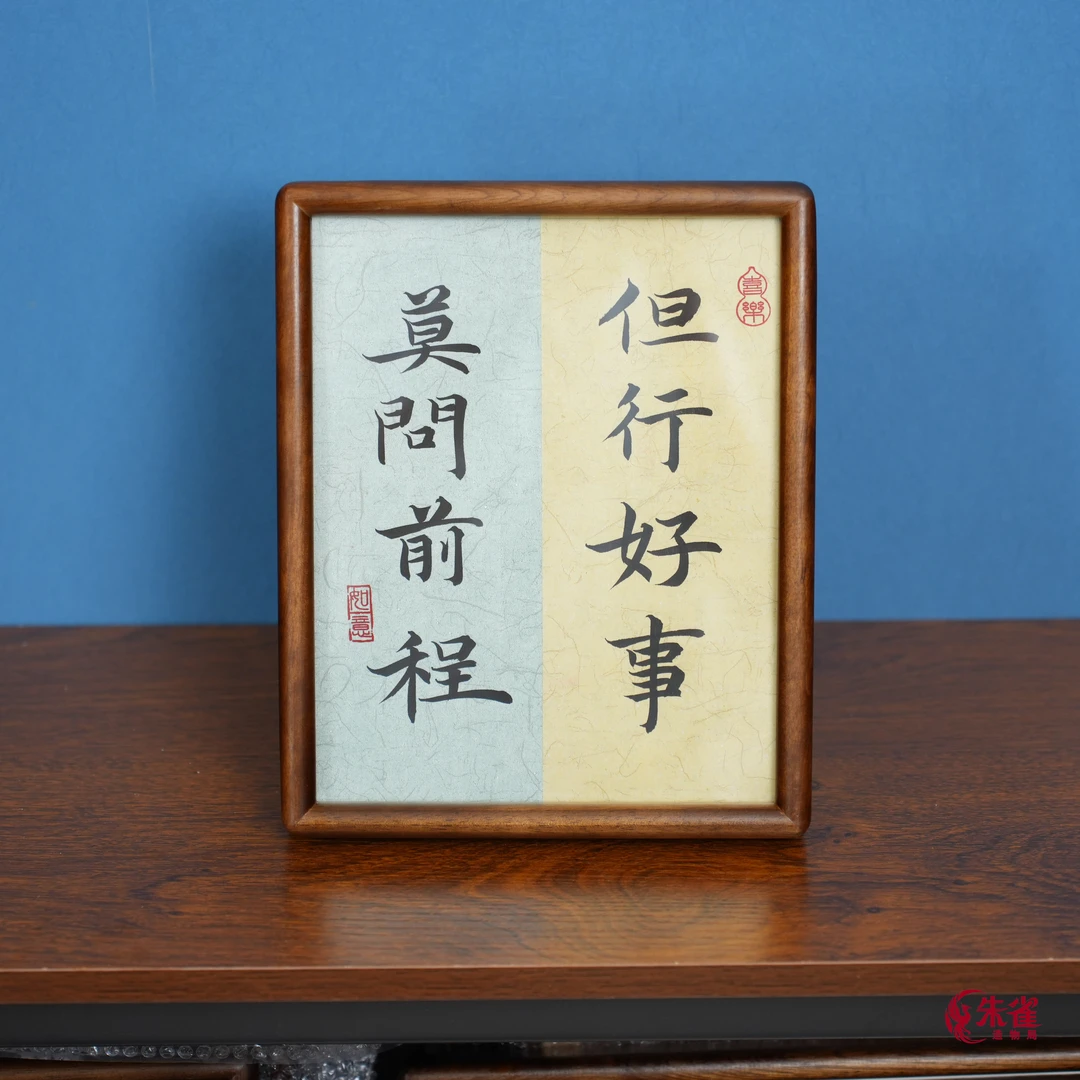 但行好事
莫問前程
喜樂
如意
朱雀